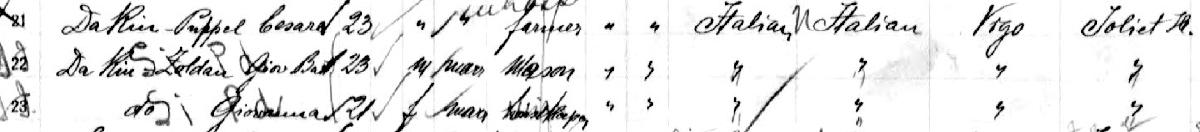 21 Da Rin - Puppel Cesare 23 " " farmer " " Italian Italian Vigo Joliet Ill.
22 Da Rin - Zoldan Giov Bat 23 m marr Mason " " " " " "
23 do Giovanna 21 f marr " " " " " "